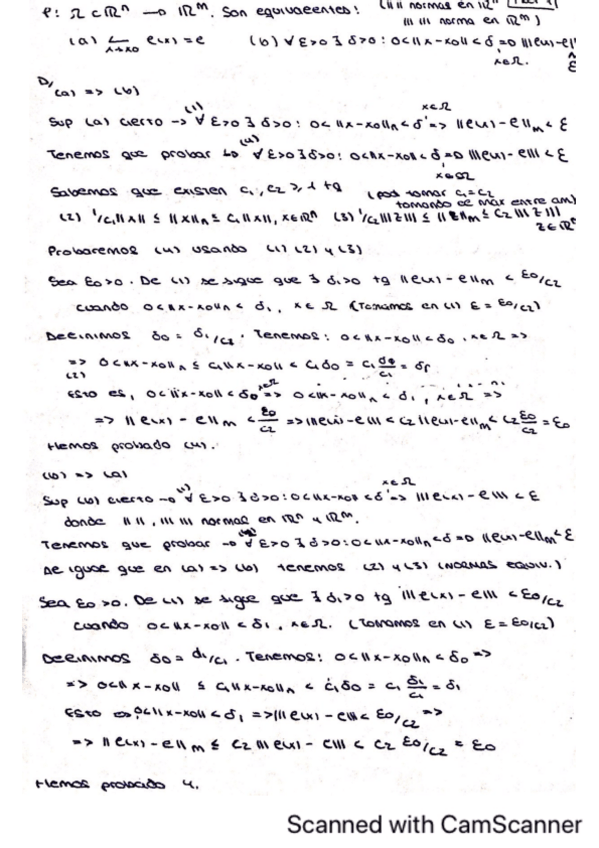 φ: Ω ⊂ ℝⁿ → ℝᵐ. Son equivalentes: (|| || normas en ℝⁿ
||| ||| norma en ℝᵐ)
(a) L_{x→x0} φ(x) = e (b) ∀ε>0 ∃ δ>0: 0<||x-x0||<δ => |||φ(x)-e|||
x∈Ω. ε
D/
(a) => (b)
Sup (a) cierto → (1) ∀ ε>0 ∃ δ>0: 0<||x-x0||ₙ<δ => ||φ(x)-e||ₘ < ε x∈Ω
Tenemos que probar → (4) ∀ε>0 ∃δ>0: 0<||x-x0||<δ => |||φ(x)-e||| < ε
x∈Ω
Sabemos que existen c₁, c₂ ≥ 1 tq (pod tomar c₁=c₂
tomando el max entre am)
(2) 1/c₁||x|| ≤ ||x||ₙ ≤ c₁||x||, x∈ℝⁿ (3) 1/c₂|||z||| ≤ ||z||ₘ ≤ c₂|||z|||
z∈ℝᵐ
Probaremos (4) usando (1) (2) y (3)
Sea ε0>0. De (1) se sigue que ∃ δ₁>0 tq ||φ(x)-e||ₘ < ε0/c₂
cuando 0<||x-x0||ₙ < δ₁, x∈Ω (Tomamos en (1) ε = ε0/c₂)
Definimos δ0 = δ₁/c₁. Tenemos: 0<||x-x0||<δ0, x∈Ω =>
=> (2) 0<||x-x0||ₙ ≤ c₁||x-x0|| < c₁δ0 = c₁ δ₁/c₁ = δ₁
Esto es, 0<||x-x0||<δ0 x∈Ω => 0<||x-x0||ₙ < δ₁, x∈Ω =>
=> ||φ(x)-e||ₘ < ε0/c₂ => |||φ(x)-e||| < c₂||φ(x)-e||ₘ < c₂ ε0/c₂ = ε0
Hemos probado (4).
(b) => (a)
Sup (b) cierto → (1) ∀ ε>0 ∃ δ>0: 0<||x-x0||<δ => |||φ(x)-e||| < ε x∈Ω
donde || ||, ||| ||| normas en ℝⁿ y ℝᵐ.
Tenemos que probar → (4) ∀ ε>0 ∃ δ>0: 0<||x-x0||ₙ<δ => ||φ(x)-e||ₘ<ε
De igual que en (a) => (b) tenemos (2) y (3) (NORMAS EQUIV.)
Sea ε0>0. De (1) se sigue que ∃ δ₁>0 tq |||φ(x)-e||| < ε0/c₂
cuando 0<||x-x0|| < δ₁, x∈Ω. (Tomamos en (1) ε = ε0/c₂)
Definimos δ0 = δ₁/c₁. Tenemos: 0<||x-x0||ₙ < δ0 =>
=> 0<||x-x0|| ≤ c₁||x-x0||ₙ < c₁δ0 = c₁ δ₁/c₁ = δ₁
Esto => 0<||x-x0|| < δ₁ => |||φ(x)-e||| < ε0/c₂ =>
=> ||φ(x)-e||ₘ ≤ c₂ |||φ(x)-e||| < c₂ ε0/c₂ = ε0
Hemos probado 4.
Scanned with CamScanner